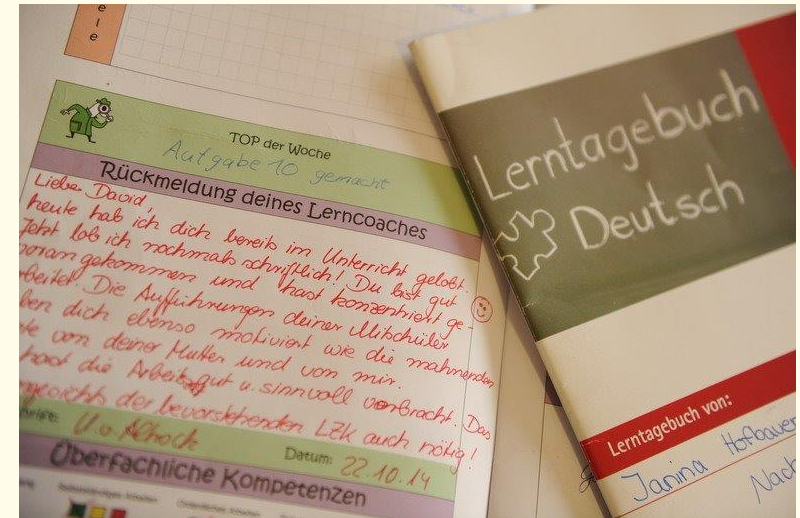 ele
TOP der Woche
Aufgabe 10 gemacht
Rückmeldung deines Lerncoaches
Lieber David,
heute hab ich dich bereits im Unterricht gelobt.
Jetzt lob ich nochmals schriftlich! Du bist gut
voran gekommen und hast konzentriert ge-
arbeitet. Die Aufführungen deiner Mitschüler
ben dich ebenso motiviert wie die mahnenden
te von deiner Mutter und von mir.
hast die Arbeitszeit gut u. sinnvoll verbracht. Das
ngesichts der bevorstehenden LZK auch nötig!
chrift:
Datum: 22.10.14
Überfachliche Kompetenzen
Lerntagebuch
Deutsch
Lerntagebuch von:
Janina Hofbauer
Nach